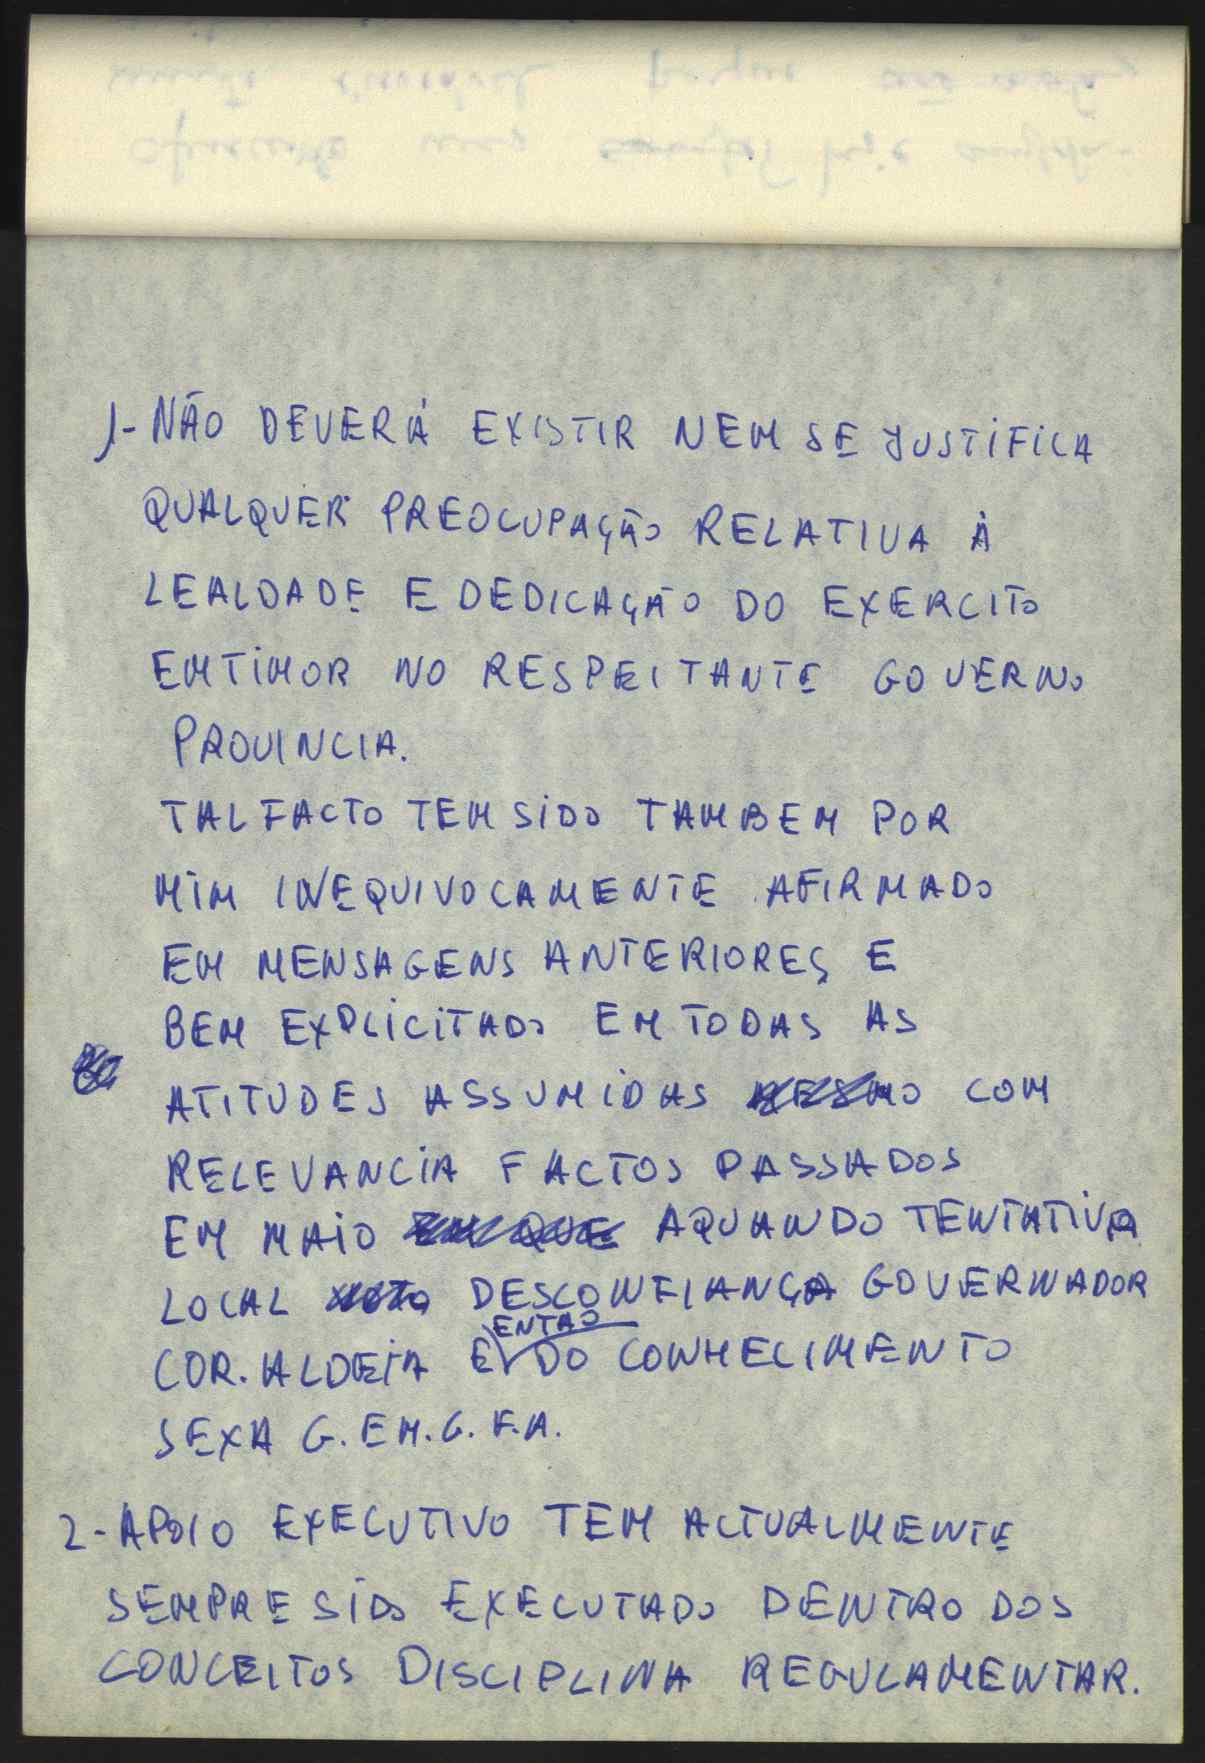 1- NÃO DEVERÁ EXISTIR NEM SE JUSTIFICA
QUALQUER PREOCUPAÇÃO RELATIVA À
LEALDADE E DEDICAÇÃO DO EXERCITO
EM TIMOR NO RESPEITANTE GOVERNO
PROVINCIA.
TAL FACTO TEM SIDO TAMBEM POR
MIM INEQUIVOCAMENTE AFIRMADO
EM MENSAGENS ANTERIORES E
BEM EXPLICITADO EM TODAS AS
ATITUDES ASSUMIDAS MESMO COM
RELEVANCIA FACTOS PASSADOS
EM MAIO EM QUE AQUANDO TENTATIVA
LOCAL DESCONFIANÇA GOVERNADOR
COR. ALDEIA E ENTÃO DO CONHECIMENTO
SEXA G. EM. G. F.A.
2- APOIO EXECUTIVO TEM ACTUALMENTE
SEMPRE SIDO EXECUTADO DENTRO DOS
CONCEITOS DISCIPLINA REGULAMENTAR.